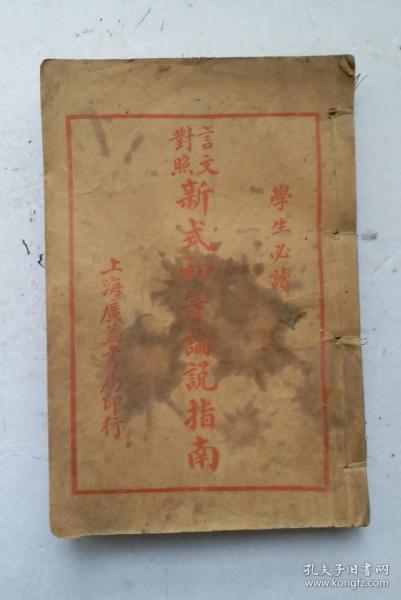 學生必讀
言文
對照
新式初等論説指南
上海廣益書局印行
孔夫子旧书网
www.kongfz.com